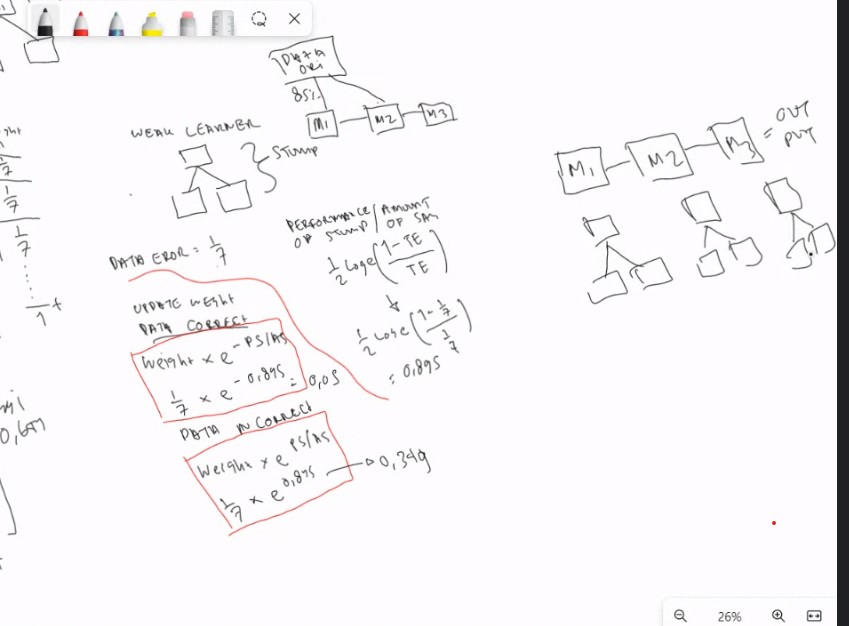 DATA
ORI
85%
M1
M2
M3
WEAK LEARNER
STUMP
1/7
1/7
1/7
1 +
DATA EROR = 1/7
PERFORMANCE / AMOUNT
OF STUMP / OF SAY
1/2 Loge (1-TE / TE)
1/2 Loge (1-1/7 / 1/7)
= 0,895
UPDATE Weight
DATA CORRECT
Weight x e^-PS/AS
1/7 x e^-0.895 = 0,05
DATA INCORRECT
Weight x e^PS/AS
1/7 x e^0,895
0,349
M1
M2
M3
= OUT
PUT
26%